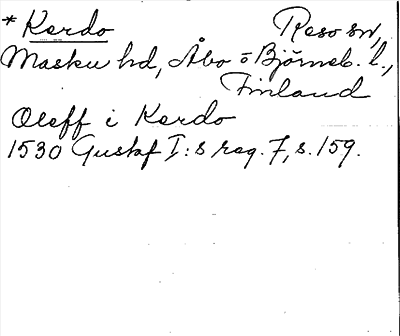 * Kerdo Reso sn,
Masku hd, Åbo o Björneb. l.,
Finland
Oleff i Kerdo
1530 Gustaf I:s reg. 7, s. 159.